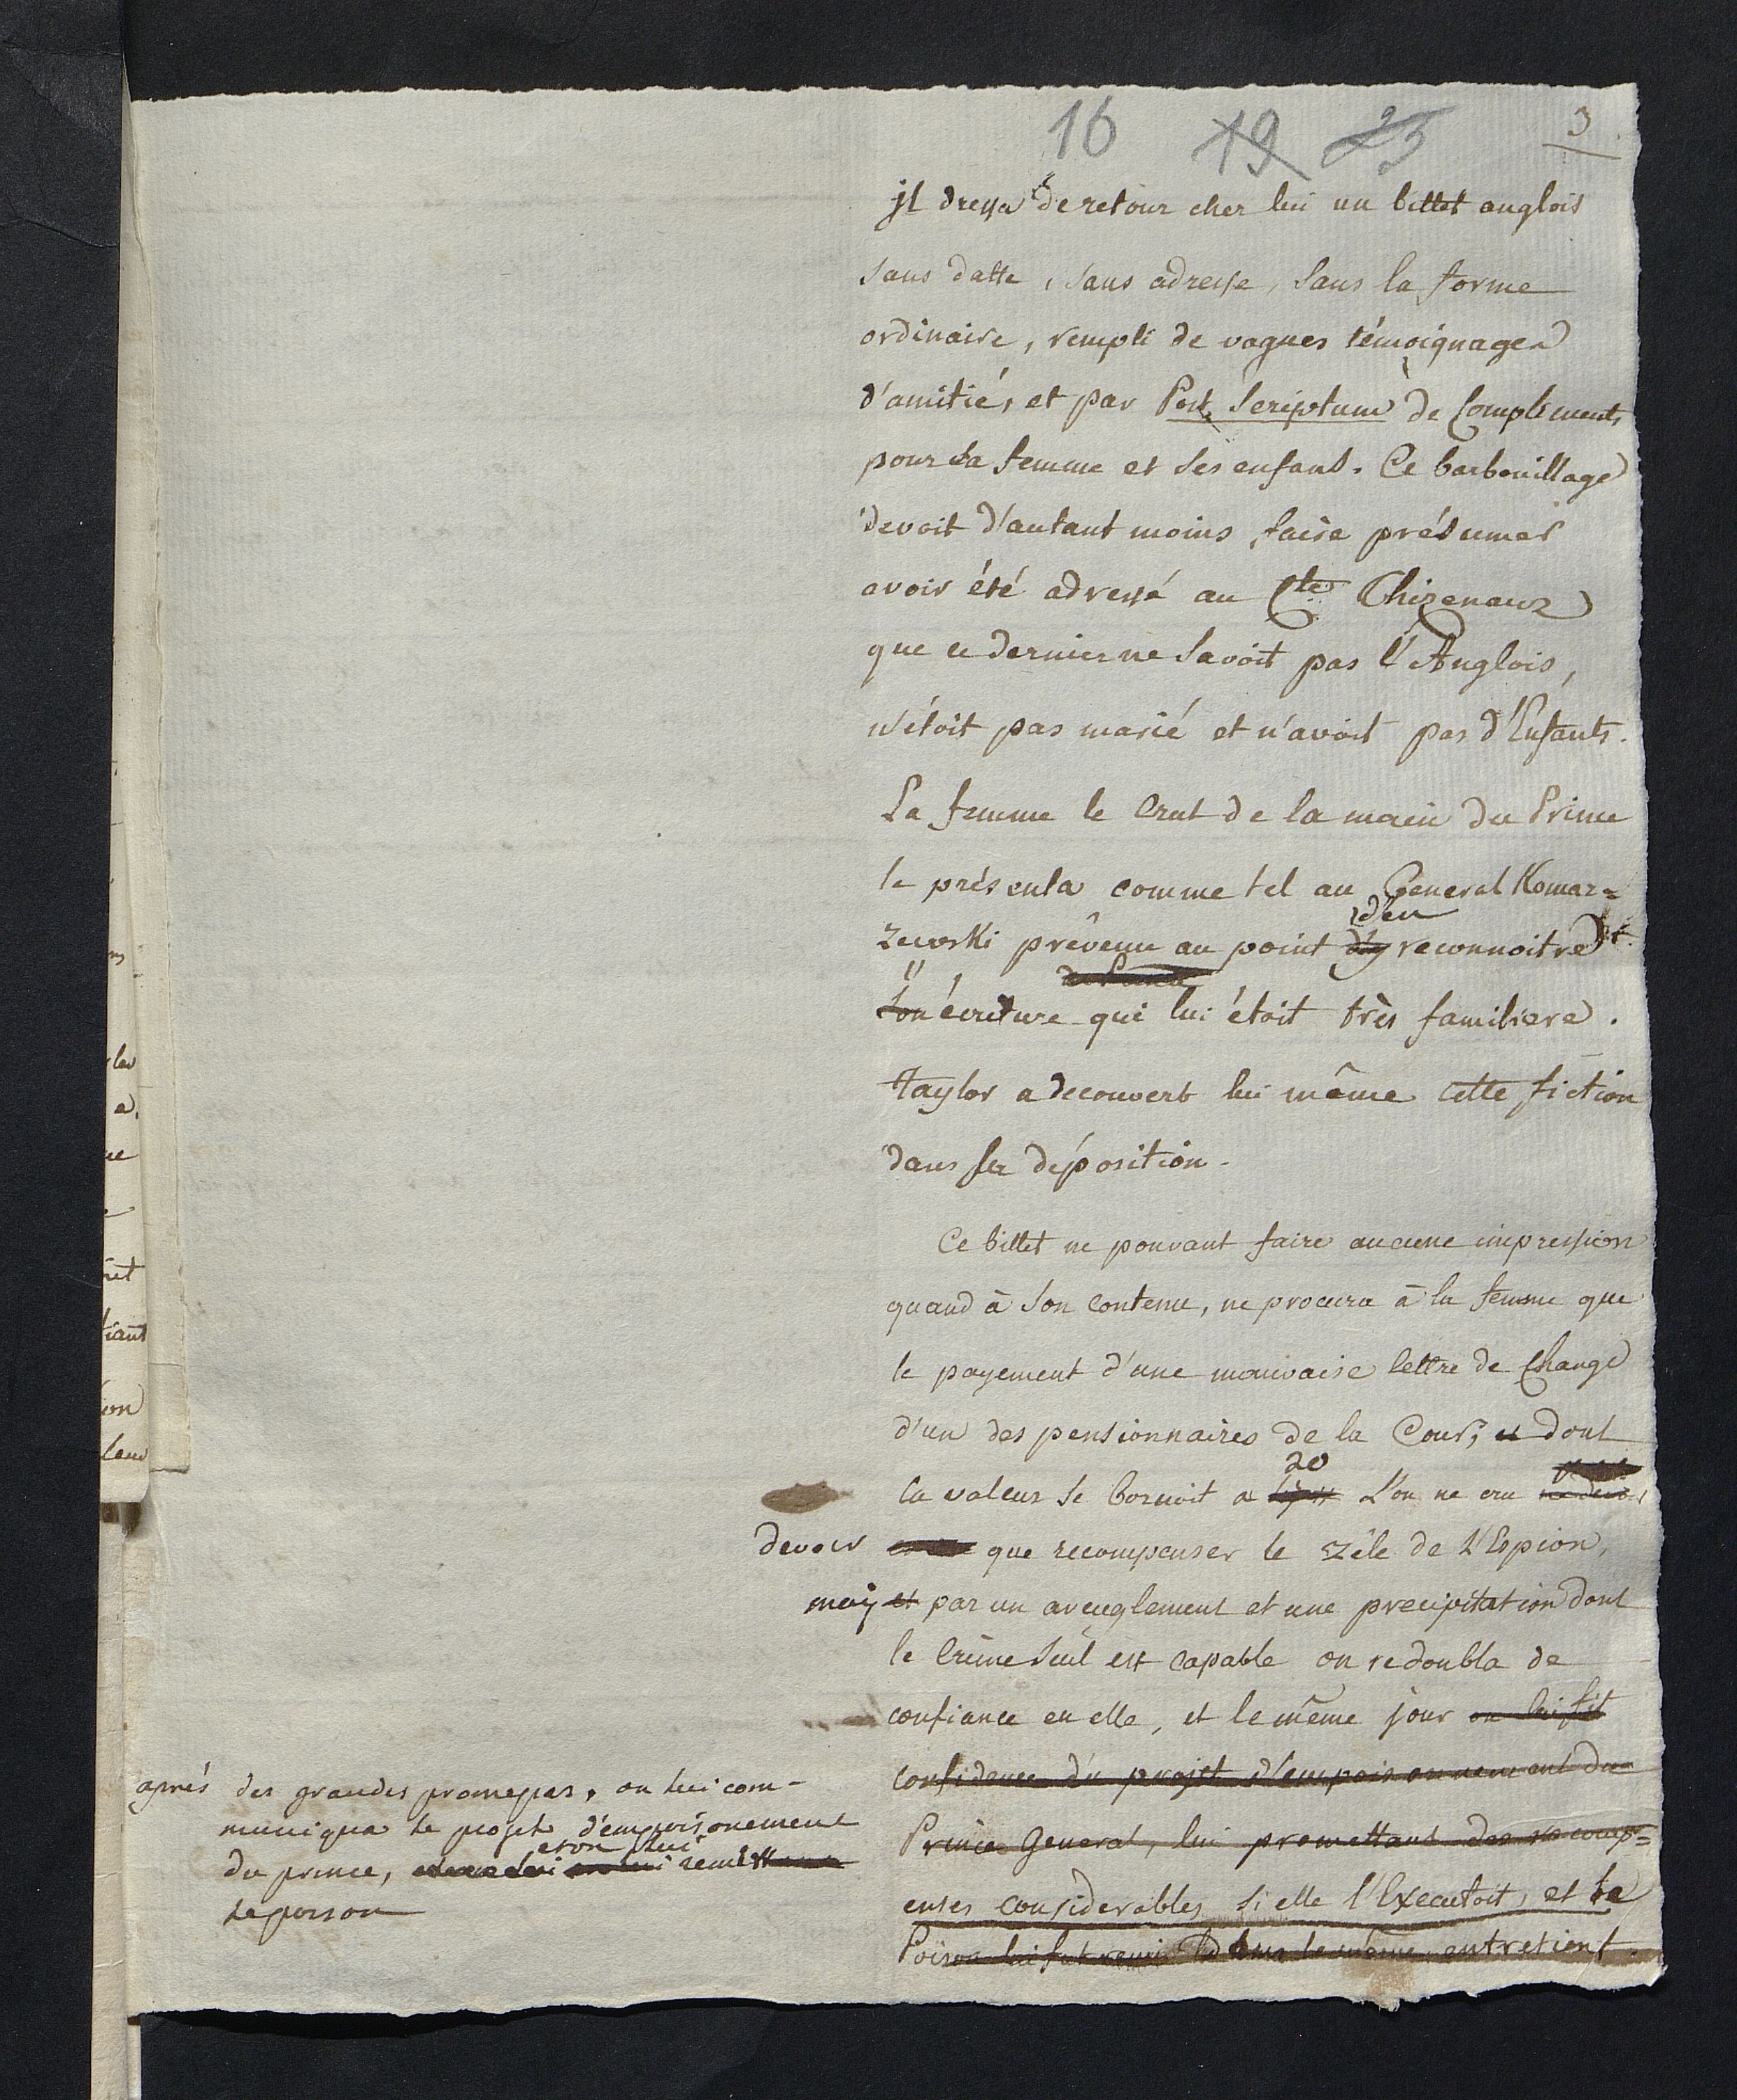 16 19 23 3
jl dressa de retour chez lui un billet anglois
sans datte, sans adresse, sans la forme
ordinaire, rempli de vagues témoignages
d'amitié, et par Post Scriptum de Compliments
pour sa femme et ses enfans. Ce barbouillage
devoit d'autant moins faire présumer
avoir été adressé au Cte Chizenauz
que ce dernier ne savoit pas l'Anglois,
n'étoit pas marié et n'avoit pas d'Enfants.
La femme le crut de la main du Prince
le présenta comme tel au General Komar=
zewski prévenu au point d'y d'en reconnoitre
Son l'écriture qui lui étoit très familiere.
Taylor a decouvert lui même cette fiction
dans sa déposition.
Ce billet ne pouvant faire aucune impression
quand à son contenu, ne procura à la femme que
le payement d'une mauvaise lettre de Change
d'un des pensionnaires de la Cour, et dont
la valeur se bornoit a 20 L'on ne cru
devoir que recompenser le zéle de l'Espion,
mais et par un aveuglement et une precipitation dont
le Crime seul est capable on redoubla de
confiance en elle, et le même jour on lui fit
confidence du projet d'empoisonnement du
Prince General, lui promettant des recomp=
enses considerables si elle l'Executoit, et le
Poison lui fut remis dans le même entretient.
après des grandes promesses, on lui com-
muniqua le projet d'empoisonement
du prince, et on lui remit
le poison